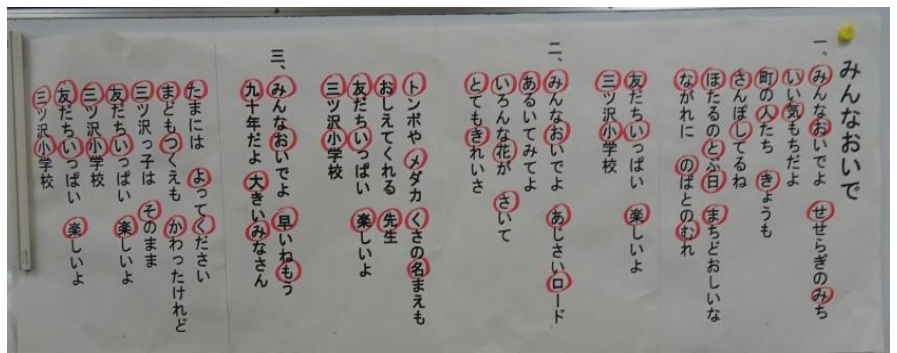 みんなおいで
一、みんなおいでよ せせらぎのみち
いい気もちだよ
町の人たち きょうも
さんぽしてるね
ほたるのとぶ日 まちどおしいな
ながれに のばとのむれ
友だちいっぱい 楽しいよ
三ツ沢小学校
二、みんなおいでよ あじさいロード
あるいてみてよ
いろんな花が さいて
とてもきれいさ
トンボや メダカ くさの名まえも
おしえてくれる 先生
友だちいっぱい 楽しいよ
三ツ沢小学校
三、みんなおいでよ 早いねもう
九十年だよ 大きいみなさん
たまには よってください
まどもつくえも かわったけれど
三ツ沢っ子は そのまま
友だちいっぱい 楽しいよ
三ツ沢小学校
友だちいっぱい 楽しいよ
三ツ沢小学校